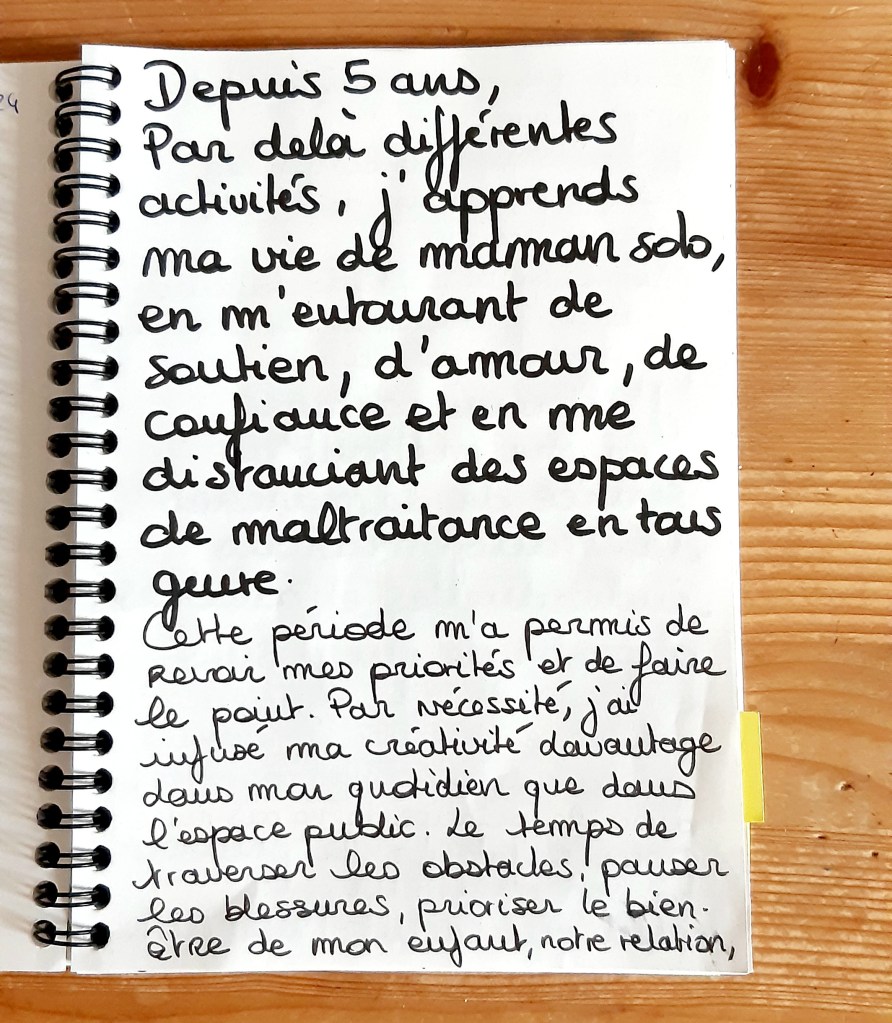 24
Depuis 5 ans,
Par delà différentes
activités, j'apprends
ma vie de maman solo,
en m'entourant de
soutien, d'amour, de
confiance et en me
distanciant des espaces
de maltraitance en tous
genre.
Cette période m'a permis de
revoir mes priorités et de faire
le point. Par nécessité, j'ai
infusé ma créativité davantage
dans mon quotidien que dans
l'espace public. Le temps de
traverser les obstacles, panser
les blessures, prioriser le bien-
être de mon enfant, notre relation,